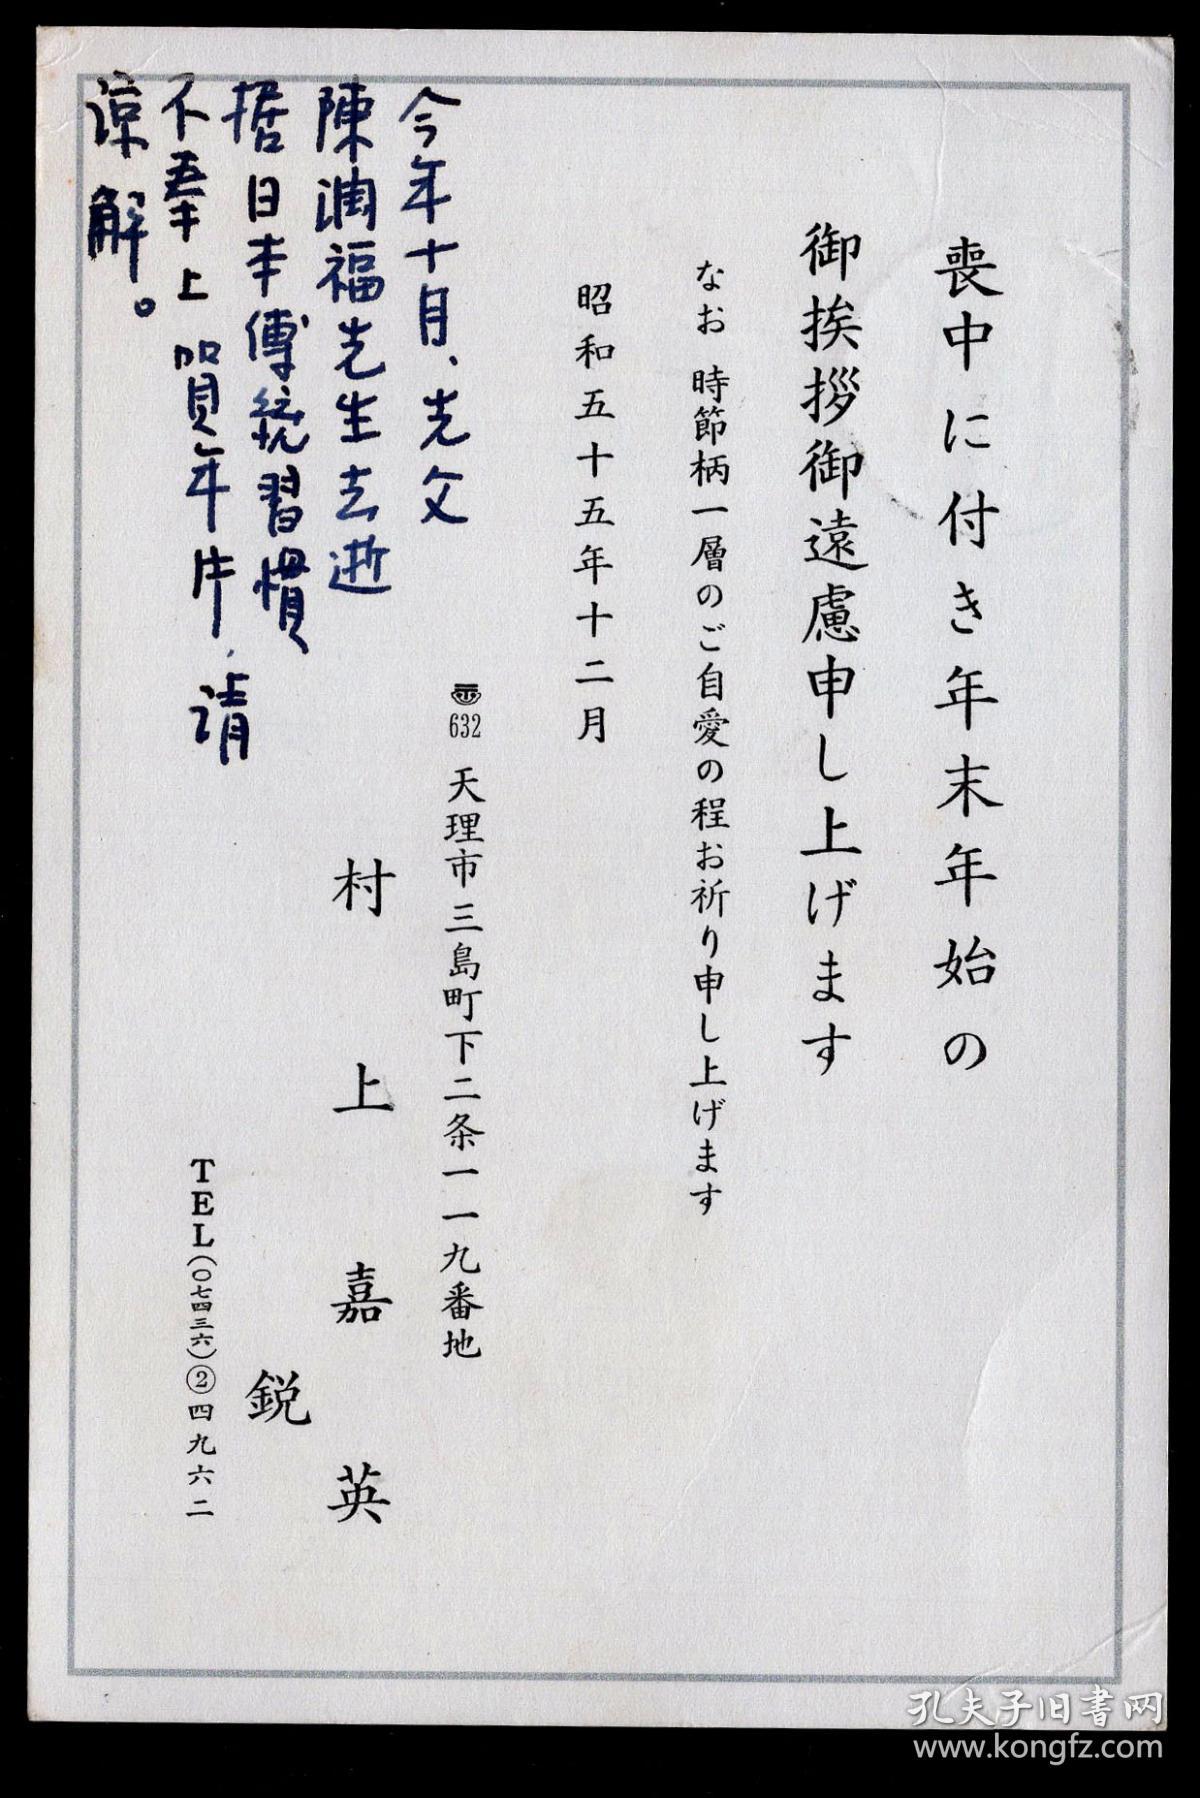 喪中に付き年末年始の
御挨拶御遠慮申し上げます
なお 時節柄一層のご自愛の程お祈り申し上げます
昭和五十五年十二月
632 天理市三島町下二条一一九番地
村上嘉英
鋭
TEL(〇七四三六)②四九六二
今年十月、先父
陳潤福先生去逝
据日本傳統習慣
不奉上 賀年片,請
諒解。
孔夫子旧书网
www.kongfz.com